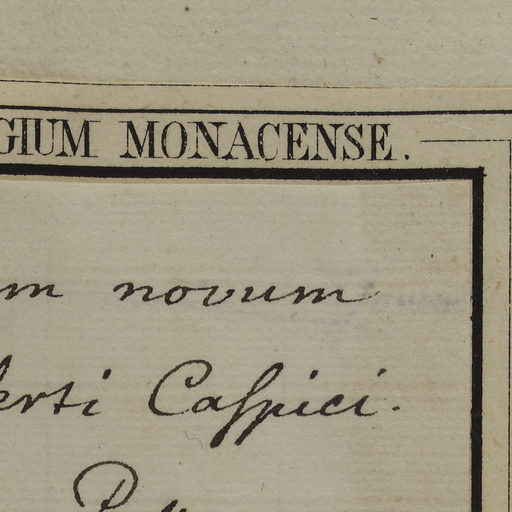 GIUM MONACENSE.
m novum
erti Caſpici.